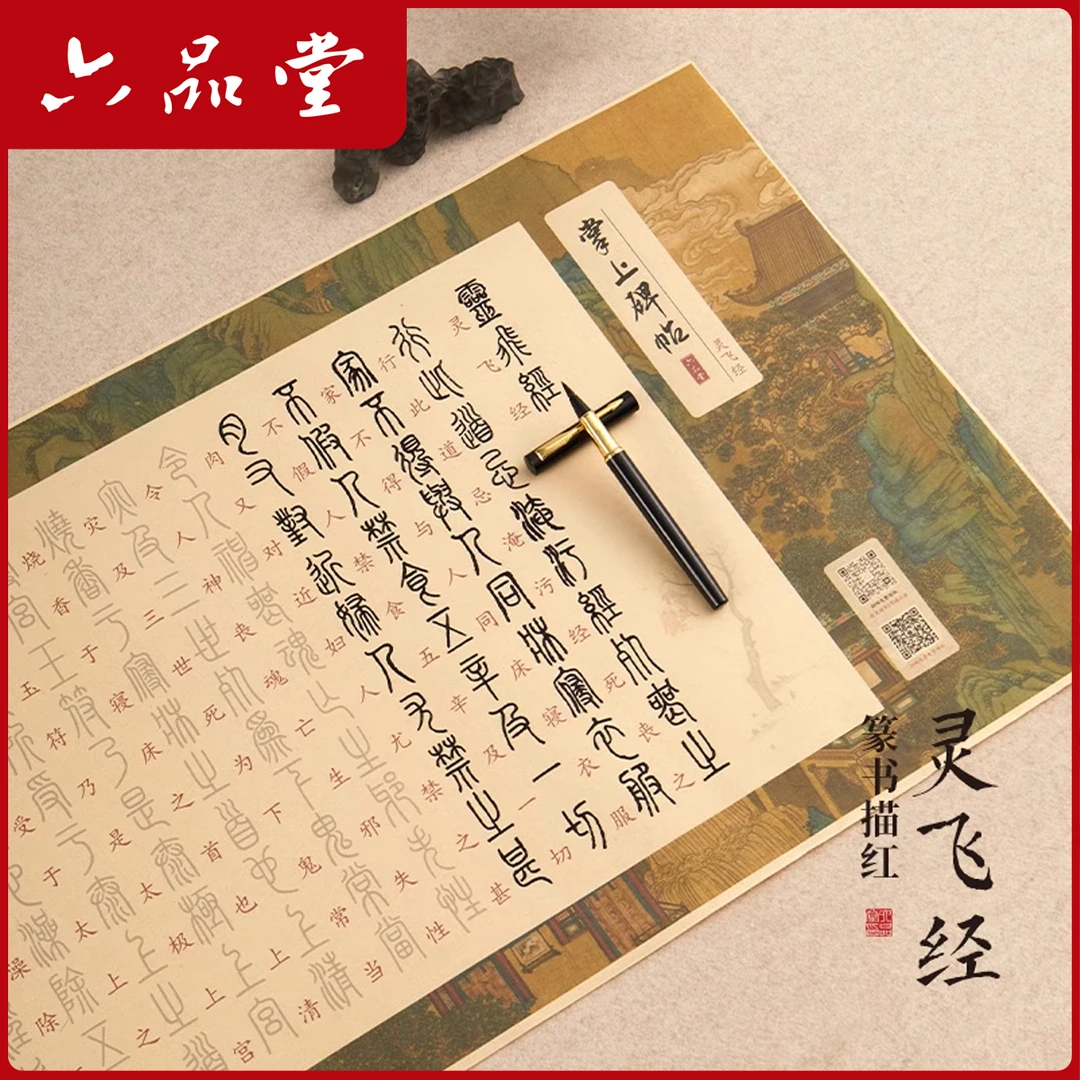 六品堂
掌上碑帖
灵飞经
六品堂
靈飛經
灵飞经
行此道忌淹污经死丧之
家不得与人同床寝衣服
不假人禁食五辛及一切
肉又对近妇人尤禁之甚
令人神丧魂亡生邪失性
灾及三世死为下鬼常当
烧香于寝床之首也上清
玉符乃是太极上宫
受于太上之
澡除
灵飞经
篆书描红